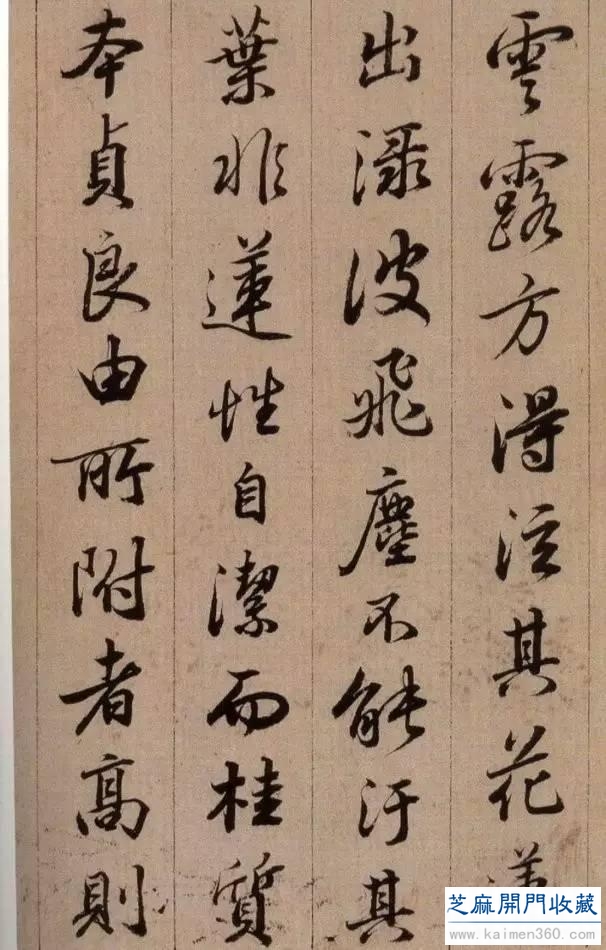 雲露方得泫其花蓮
出淥波飛塵不能汙其
葉非蓮性自潔而桂質
本貞良由所附者高則
芝麻開門收藏
www.kaimen360.com